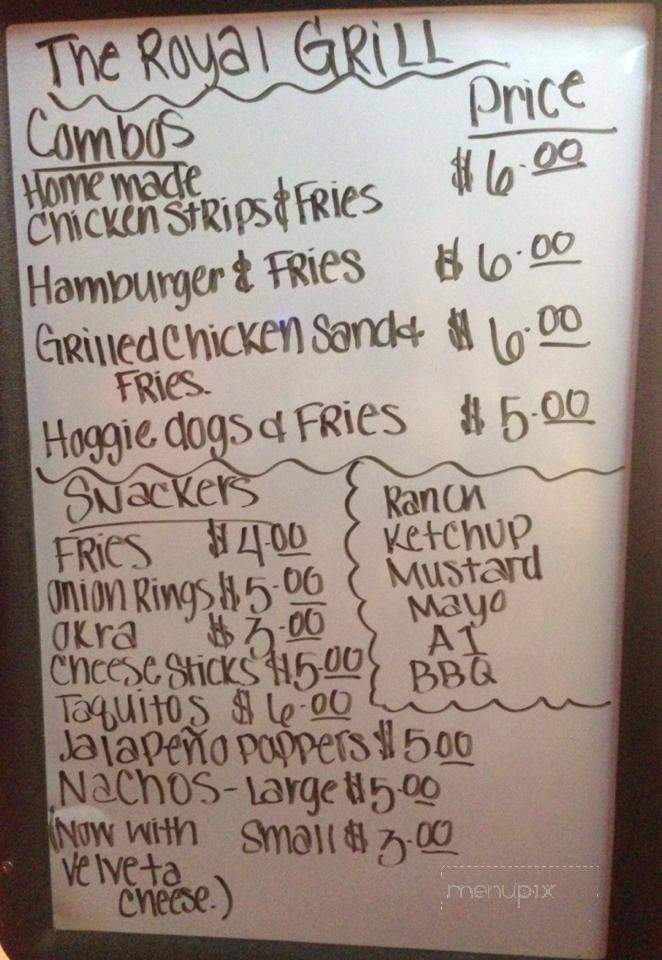 The Royal GRiLL
Combos Price
Homemade
Chicken Strips & Fries $6.00
Hamburger & Fries $6.00
Grilled Chicken Sand & $6.00
Fries.
Hoggie dogs & Fries $5.00
Snackers
Fries $4.00
Onion Rings $5.00
Okra $3.00
Cheese Sticks $5.00
Taquitos $6.00
Jalapeño Poppers $5.00
Nachos - Large $5.00
(Now with Small $3.00
Velveta
Cheese.)
Ranch
Ketchup
Mustard
Mayo
A1
BBQ
menupix